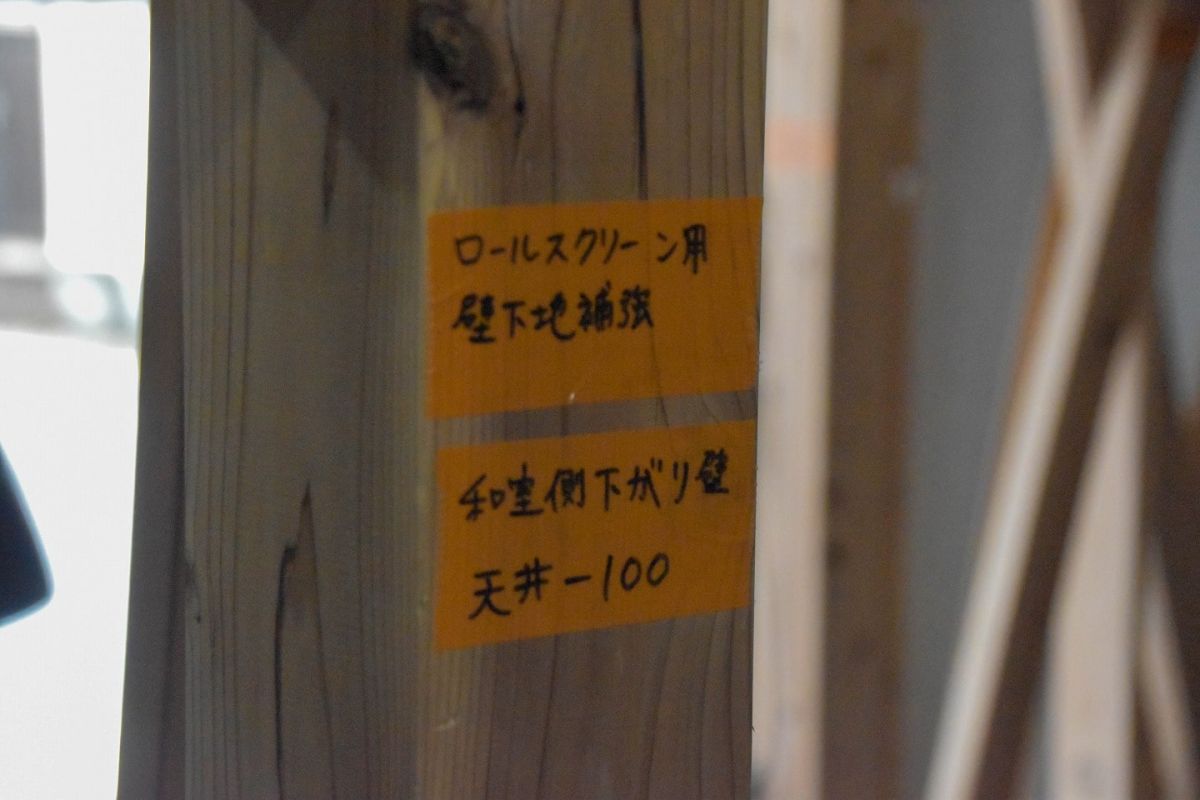 ロールスクリーン用
壁下地補強
和室側下がり壁
天井-100